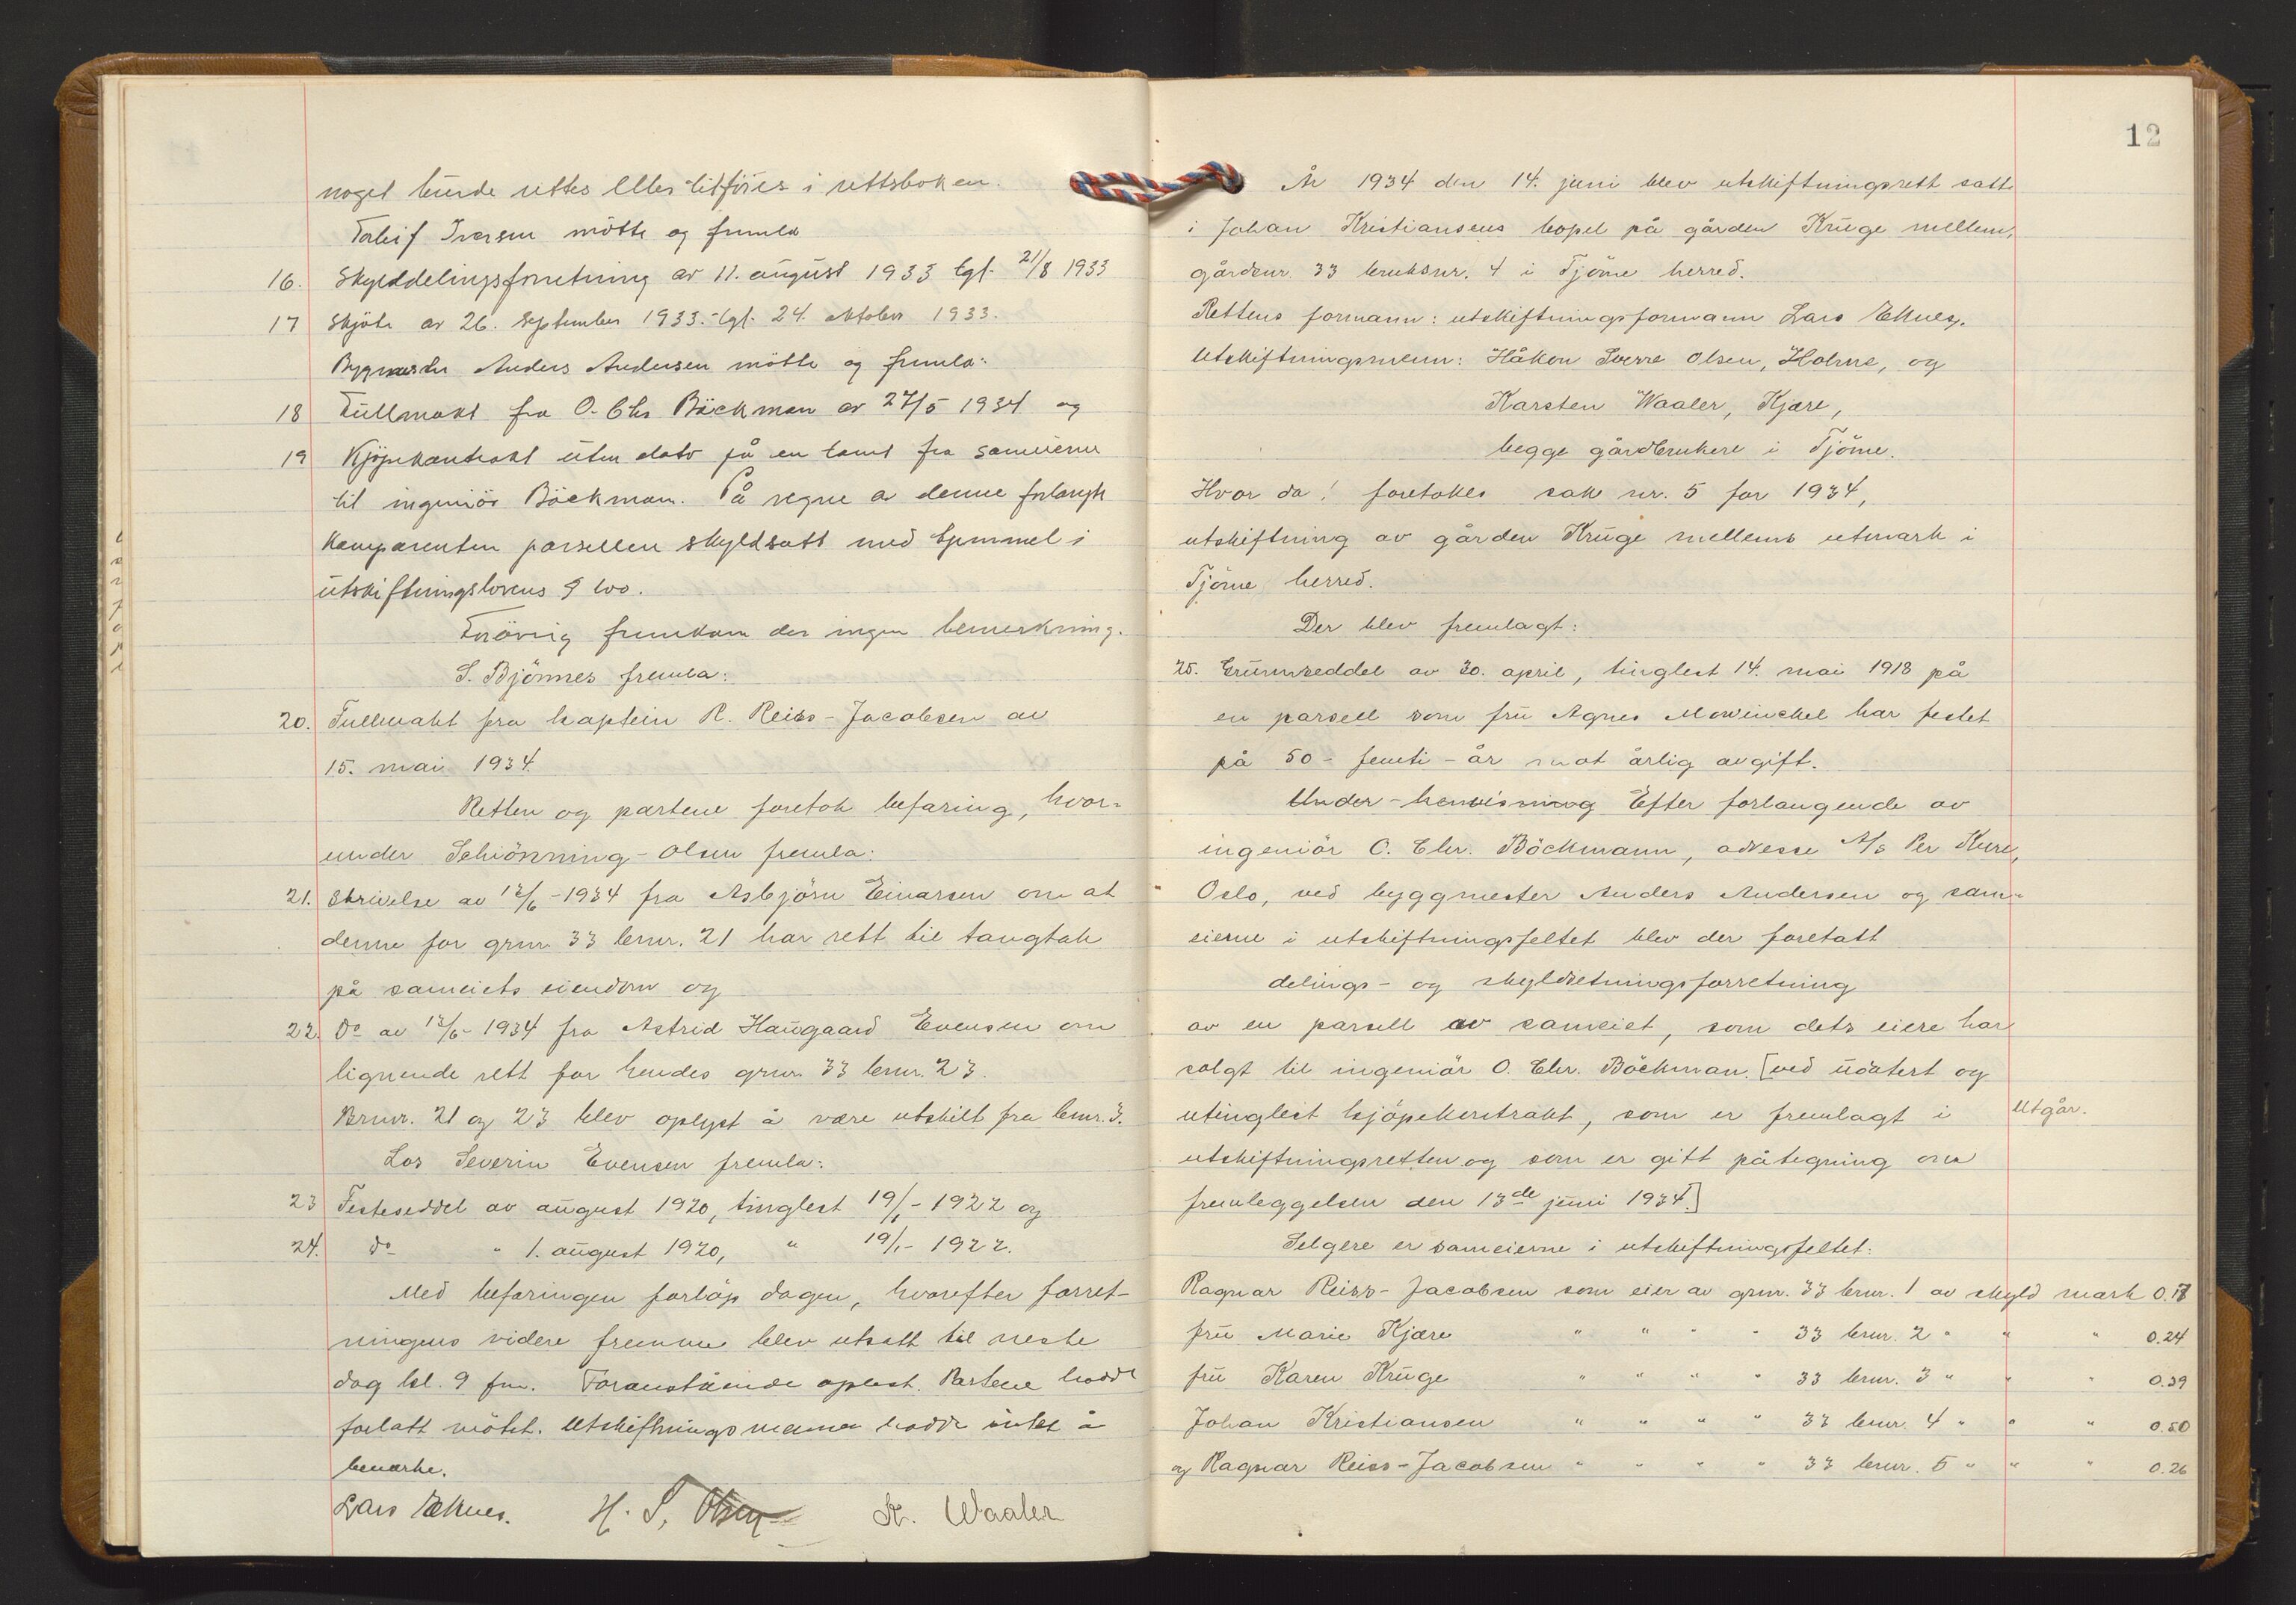 noget burde rettes eller tilføies i rettsboken.
Torleif Iversen mötte og fremla
16. Skylddelingsforretning av 11. august 1933 tgl. 21/8 1933
17 Skjöte av 26. september 1933. tgl. 24. oktober 1933.
Byggmester Anders Andersen mötte og fremla:
18 Fullmakt fra O. Chr Böckman av 27/5 1934 og
19 Kjöpekontrakt uten dato på en tomt fra sameierne
til ingeniör Böckman. På vegne av denne forlangte
komparenten parsellen skyldsatt med hjemmel i
utskiftningslovens §
Forövrig fremkom der ingen bemerkning.
S. Björnnes fremla:
20. Fullmakt fra kaptein R. Reiss-Jacobsen av
15. mai 1934.
Retten og partene foretok befaring, hvor-
under Schiönning-Olsen fremla:
21. Skrivelse av 12/6-1934 fra Asbjörn Einarsen om at
denne for grnr. 33 brnr. 21 har rett til tangtak
på sameiets eiendom og
22. Do av 12/6-1934 fra Astrid Haugaard Evensen om
lignende rett for hendes grnr. 33 brnr. 23.
Brnr. 21 og 23 blev oplyst å være utskilt fra brnr. 3.
Los Severin Evensen fremla:
23 Festeseddel av august 1920, tinglest 19/1-1922 og
24. do " 1. august 1920, " 19/1-1922.
Med befaringen forløp dagen, hvorefter forret-
ningens videre fremme blev utsatt til neste
dag kl. 9 fm. Foranstående oplest. Partene hadde
forlatt mötet. Utskiftningsmennene hadde intet å
bemerke.
Lars Eknes. H. S. Olsen K. Waaler
12
År 1934 den 14. juni blev utskiftningsrett satt
i Johan Kristiansens bopel på gården Kruge mellem,
gårdsnr. 33 bruksnr. 4 i Tjöme herred.
Rettens formann: utskiftningsformann Lars Eknes.
Utskiftningsmenn: Håkon Sverre Olsen, Holme, og
Karsten Waaler, Kjære,
begge gårdbrukere i Tjöme.
Hvor da! foretokes sak nr. 5 for 1934,
utskiftning av gården Kruge mellems utmark i
Tjöme herred.
Der blev fremlagt:
25. Grunnseddel av 30. april, tinglest 14. mai 1918 på
en parsell som fru Agnes Mowinckel har festet
på 50 - femti - år mot årlig avgift.
Under henvisning Efter forlangende av
ingeniör O. Chr. Böckmann, adresse A/S Per Kure,
Oslo, ved byggmester Anders Andersen og sam-
eierne i utskiftningsfeltet blev der foretatt
delings- og skyldsetningsforretning
av en parsell av sameiet, som dets eiere har
solgt til ingeniör O. Chr. Böckman. [ved udatert og
utinglest kjöpekontrakt, som er fremlagt i Utgår.
utskiftningsretten og som er gitt påtegning om
fremleggelsen den 13de juni 1934.]
Selgere er sameierne i utskiftningsfeltet:
Ragnar Reiss-Jacobsen som eier av grnr. 33 brnr. 1 av skyld mark 0.18
fru Marie Kjære " " " " 33 brnr. 2 " " " 0.24
fru Karen Kruge " " " " 33 brnr. 3 " " " 0.39
Johan Kristiansen " " " " 33 brnr. 4 " " " 0.50
og Ragnar Reiss-Jacobsen " " " " 33 brnr. 5 " " " 0.26